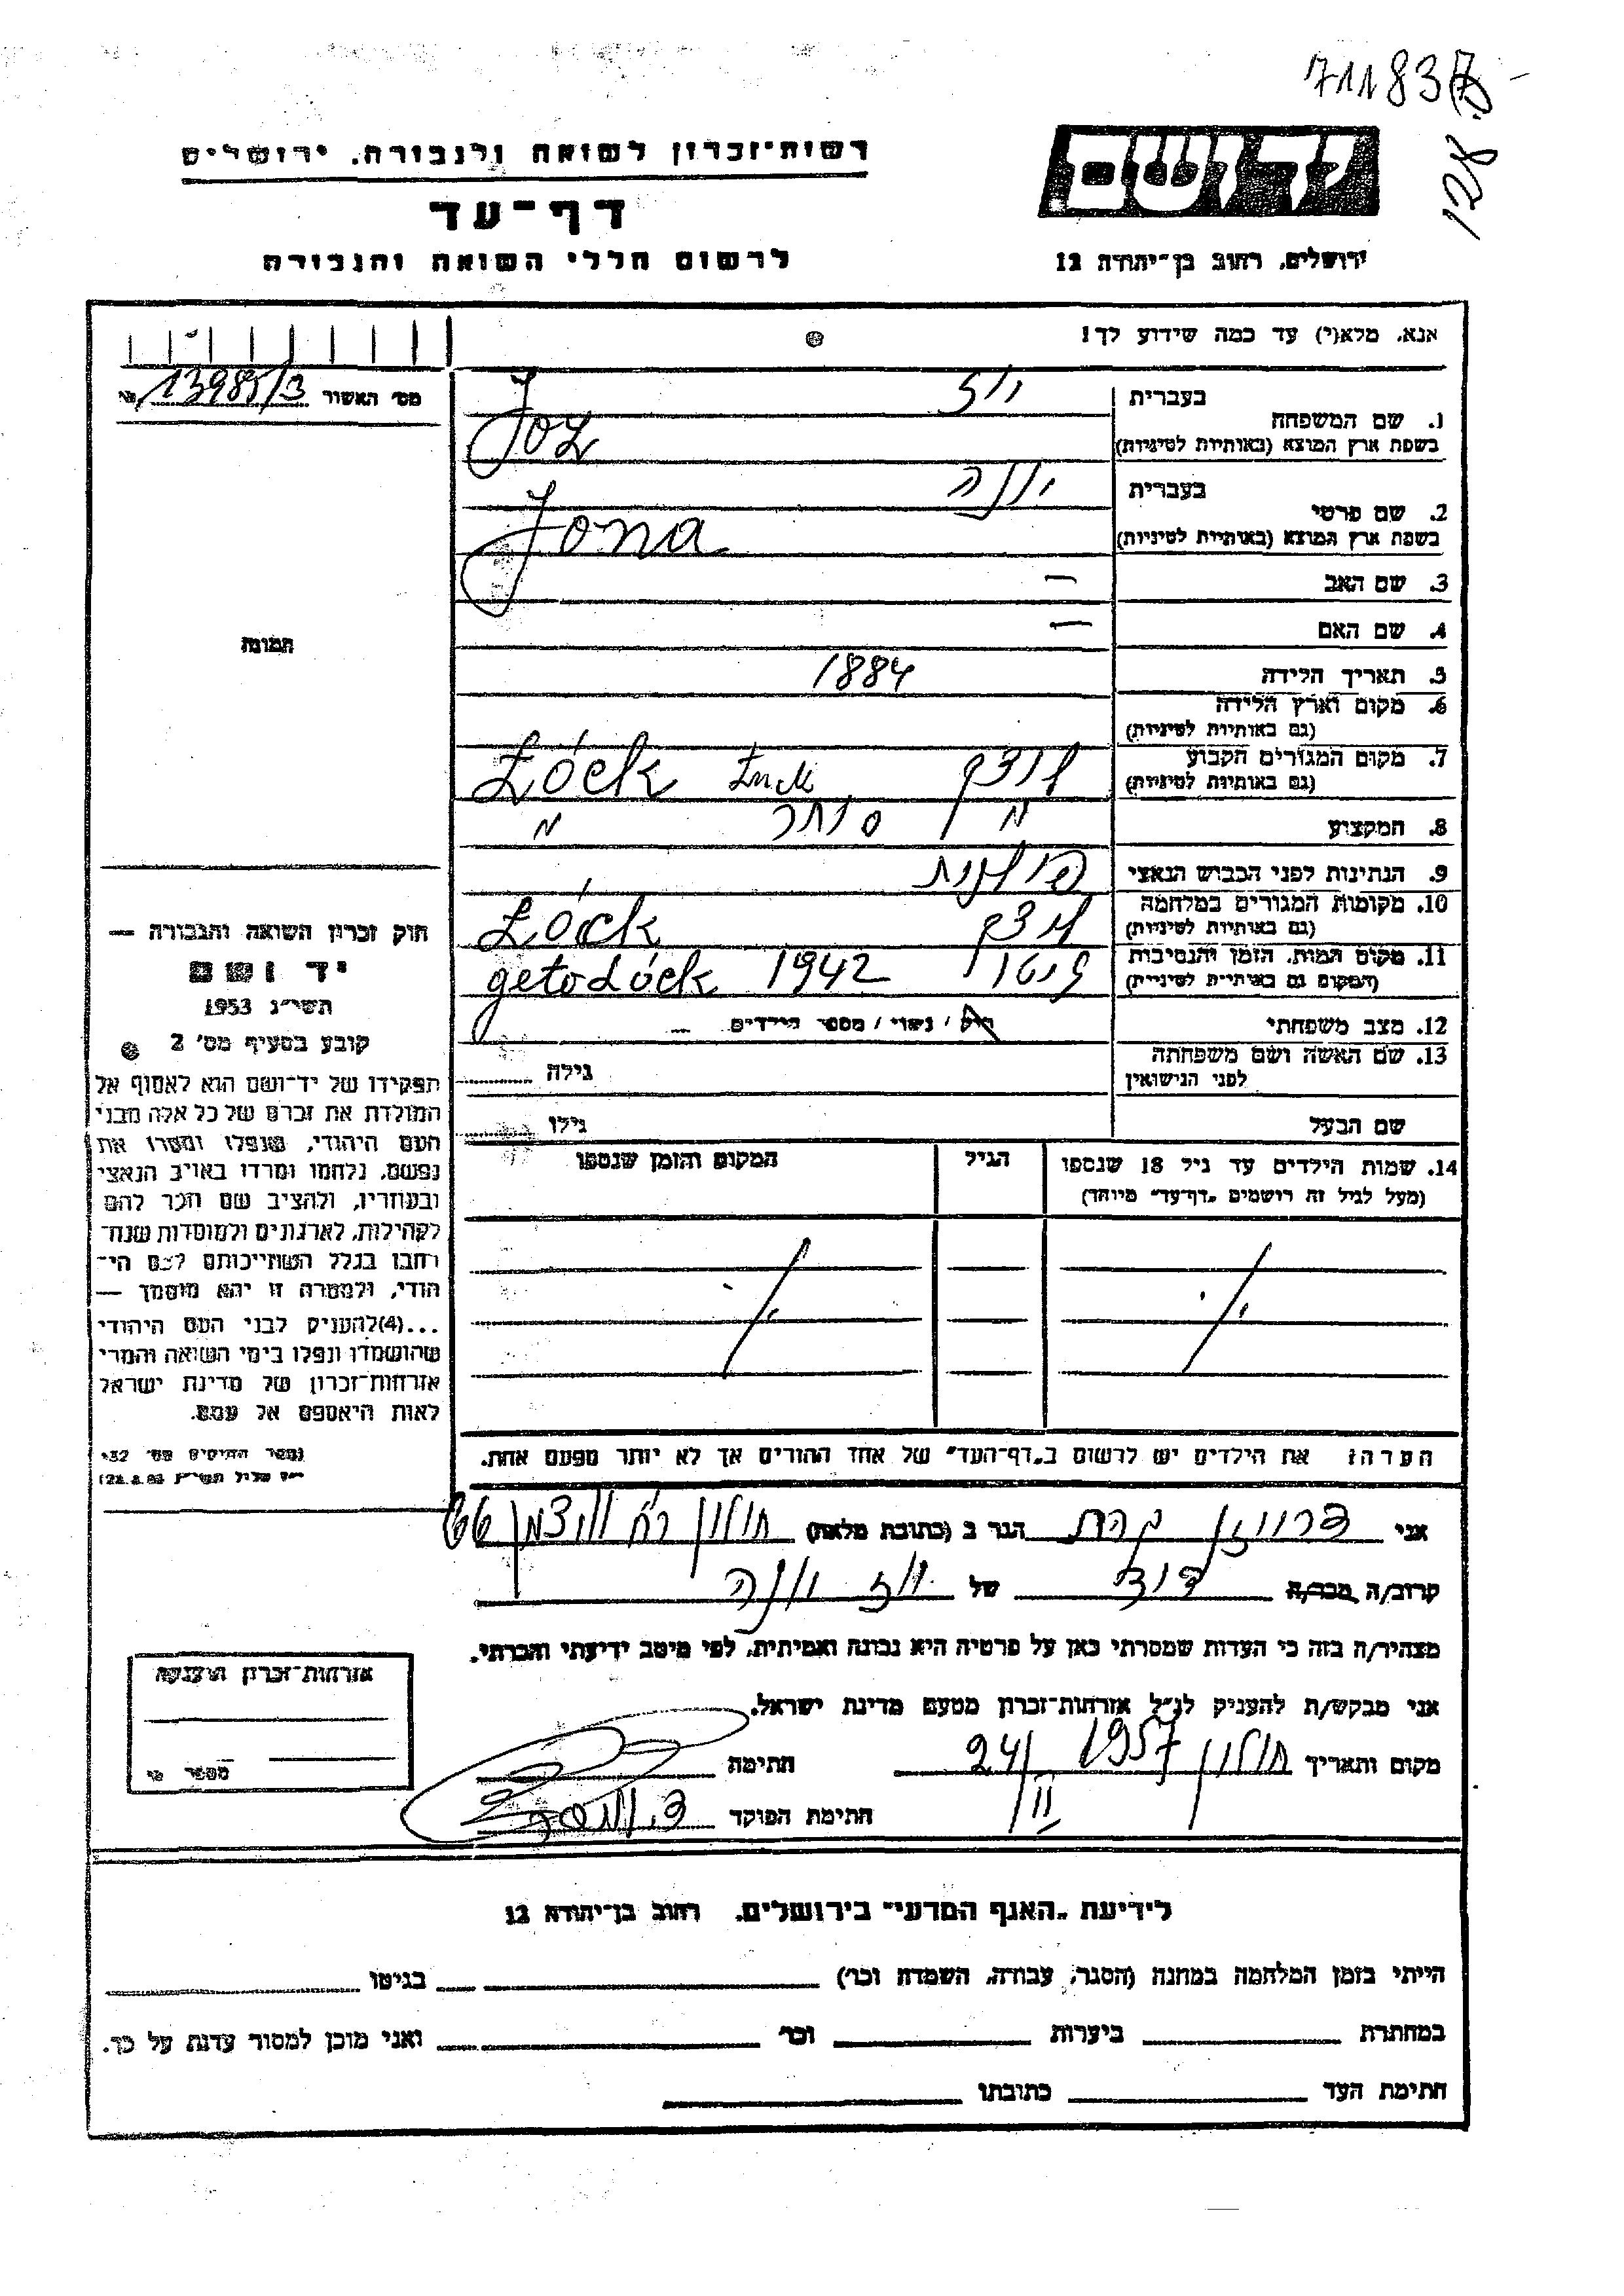 711837
128
ידושם
רשות־זכרון לשואה ולגבורה. ירושלים
דף־עד
לרשום חללי השואה והגבורה
ירושלים, רחוב בן־יהודה 12
אנא, מלא(י) עד כמה שידוע לך!
מס׳ האשור 13985/3
1. שם המשפחה
בעברית יוז
בשפת ארץ המוצא (באותיות לטיניות) Joz
2. שם פרטי
בעברית יונה
בשפת ארץ המוצא (באותיות לטיניות) Jona
3. שם האב —
4. שם האם —
5. תאריך הלידה 1884
6. מקום וארץ הלידה
(גם באותיות לטיניות)
7. מקום המגורים הקבוע לודז Łóck
(גם באותיות לטיניות)
8. המקצוע סוחר
9. הנתינות לפני הכבוש הנאצי פולנית
10. מקומות המגורים במלחמה Łóck
(גם באותיות לטיניות)
11. מקום המות, הזמן והנסיבות גיטו 1942 geto Łóck
(המקום גם באותיות לטיניות)
12. מצב משפחתי רוק / נשוי / מספר הילדים —
13. שם האשה ושם משפחתה גילה
לפני הנישואין
שם הבעל גילו
14. שמות הילדים עד גיל 18 שנספו הגיל המקום והזמן שנספו
(מעל לגיל זה רושמים „דף־עד״ מיוחד)
הערה: את הילדים יש לרשום ב„דף־העד״ של אחד ההורים אך לא יותר מפעם אחת.
תמונה
חוק זכרון השואה והגבורה —
יד ושם
תשי״ג 1953
קובע בסעיף מס׳ 2
תפקידו של יד־ושם הוא לאסוף אל
המולדת את זכרם של כל אלה מבני
העם היהודי, שנפלו ומסרו את
נפשם, נלחמו ומרדו באויב הנאצי
ובעוזריו, ולהציב שם וזכר להם
לקהילות, לארגונים ולמוסדות שנח־
רבו בגלל השתייכותם לעם הי־
הודי, ולמטרה זו יהא מוסמך —
...(4) להעניק לבני העם היהודי
שהושמדו ונפלו בימי השואה והמרי
אזרחות־זכרון של מדינת ישראל
לאות היאספם אל עמם.
אני הגר ב (כתובת מלאה) חולון רח׳ ויצמן 66
קרוב/ה מכר/ה דוד של יוז יונה
מצהיר/ה בזה כי העדות שמסרתי כאן על פרטיה היא נכונה ואמיתית, לפי מיטב ידיעתי והכרתי.
אני מבקש/ת להעניק לנ״ל אזרחות־זכרון מטעם מדינת ישראל.
מקום ותאריך חולון 24/II 1957 חתימה
חתימת הפוקד
אזרחות־זכרון הוענקה
מספר
לידיעת „האגף המדעי״ בירושלים, רחוב בן־יהודה 12
הייתי בזמן המלחמה במחנה (הסגר, עבודה, השמדה וכו׳) בגיטו
במחתרת ביערות וכו׳ ואני מוכן למסור עדות על כך.
חתימת העד כתובתו